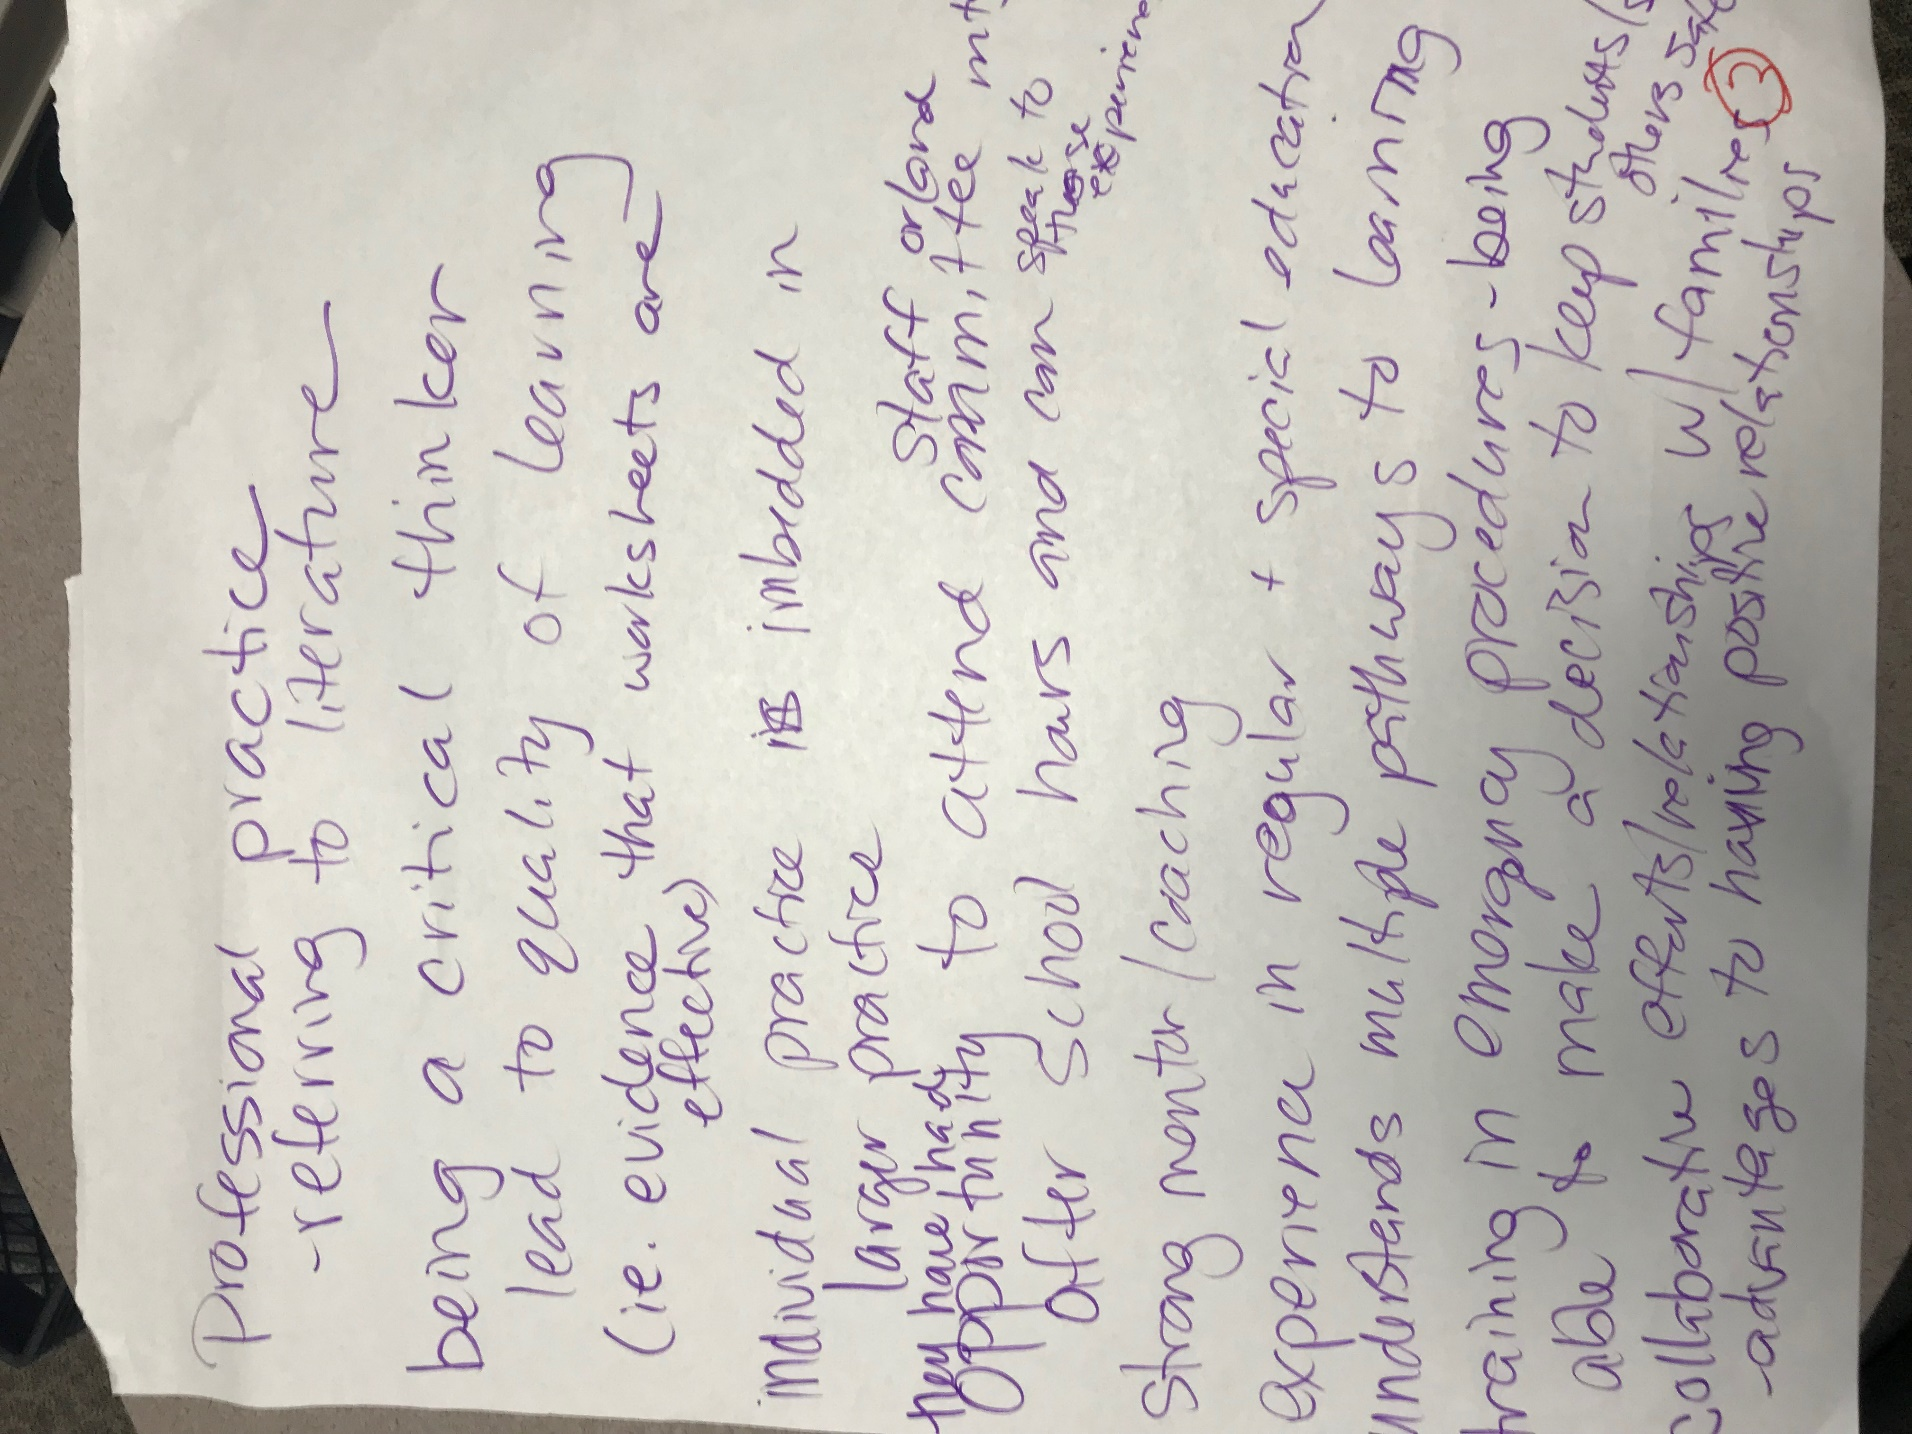 Professional practice
- referring to literature
being a critical thinker
lead to quality of learning
(ie. evidence that worksheets are
effective)
individual practice is imbedded in
larger practice
they have had staff or/and
opportunity to attend committee mt
after school hours and can speak to
those
experience
Strong mentor/coaching
experience in regular + special education
understands multiple pathways to learning
training in emergency procedures - being
able to make a decision to keep students/s
others safe
collaborative efforts/relationships w/ families
3
- advantages to having positive relationships